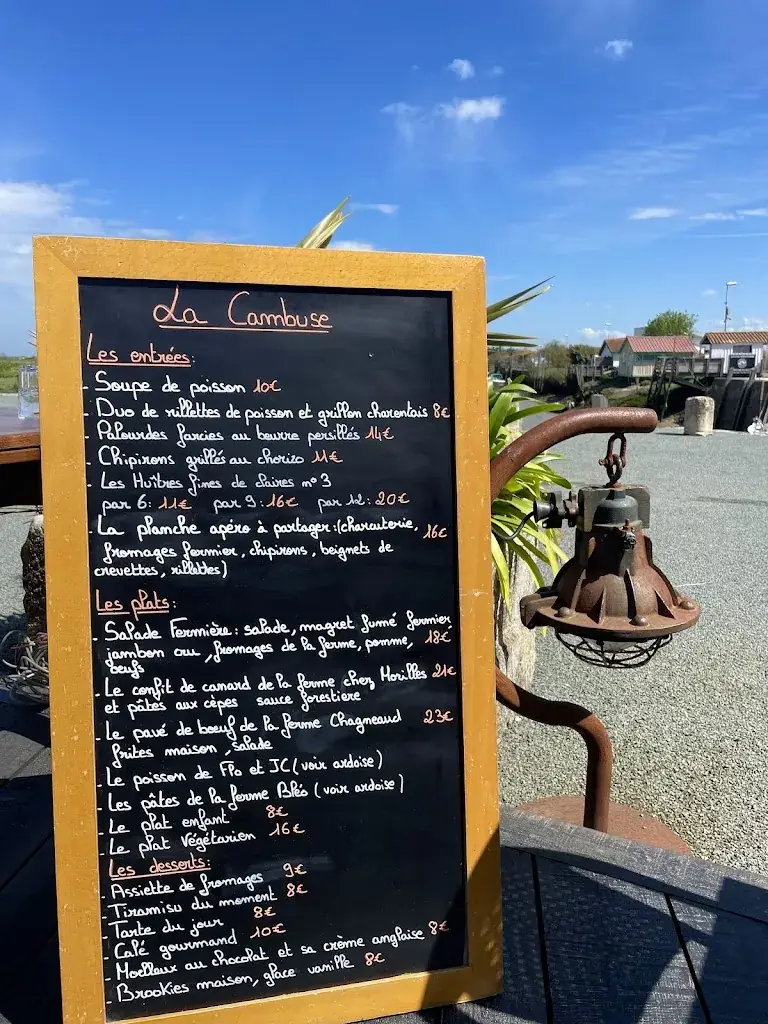 La Cambuse
Les entrées:
- Soupe de poisson 10€
- Duo de rillettes de poisson et grillon charentais 8€
- Palourdes farcies au beurre persillés 14€
- Chipirons grillés au chorizo 11€
- Les Huîtres fines de claires n° 3
par 6: 11€ par 9: 16€ par 12: 20€
- La planche apéro à partager: (charcuterie, 16€
fromages fermier, chipirons, beignets de
crevettes, rillettes)
Les plats:
- Salade Fermière: salade, magret fumé fermier
jambon cru, fromages de la ferme, pomme, 18€
oeufs
- Le confit de canard de la ferme chez Morilles 21€
et pâtes aux cèpes sauce forestière
- Le pavé de boeuf de la ferme Chagneaud 23€
frites maison, salade
- Le poisson de Flo et JC (voir ardoise)
- Les pâtes de la ferme Bléo (voir ardoise)
- Le plat enfant 8€
- Le plat Végétarien 16€
Les desserts:
- Assiette de fromages 9€
- Tiramisu du moment 8€
- Tarte du jour 8€
- Café gourmand 10€
- Moelleux au chocolat et sa crème anglaise 8€
- Brookies maison, glace vanille 8€